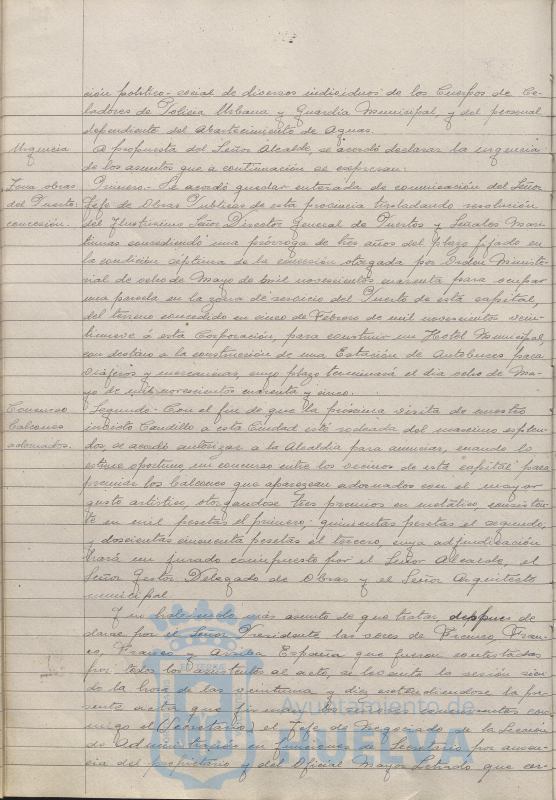 ción politico-social de diversos individuos de los Cuerpos de Ce-
ladores de Policia Urbana y Guardia Municipal y del personal
dependiente del Abastecimiento de Aguas.
Urgencia
A propuesta del Señor Alcalde, se acordó declarar la urgencia
de los asuntos que a continuación se expresan:
Zona obras
del Puerto
concesión.
Primero.- Se acordó quedar enterada de comunicación del Señor
Jefe de Obras Publicas de esta provincia trasladando resolución
del Ilustrisimo Señor Director General de Puertos y Señales Mari-
timas concediendo una prórroga de tres años del plazo fijado en
la condición séptima de la concesión otorgada por Orden Ministe-
rial de ocho de Mayo de mil novecientos cuarenta para ocupar
una parcela en la zona de servicio del Puerto de esta capital,
del terreno concedido en cinco de Febrero de mil novecientos vein-
tinueve á esta Corporación, para construir un Hostel Municipal,
con destino a la construcción de una Estación de Autobuses para
viajeros y mercancias, cuyo plazo terminará el dia ocho de Ma-
yo de mil novecientos cuarenta y cinco.
Concurso
Balcones
adornados.
Segundo.- Con el fin de que la próxima visita de nuestro
invicto Caudillo a esta Ciudad esté rodeada del maximo esplen-
dor, se acordó autorizar a la Alcaldia para anunciar, cuando lo
estime oportuno, un concurso entre los vecinos de esta capital para
premiar los balcones que aparezcan adornados con el mayor
gusto artistico, otorgandose tres premios en metálico, consisten-
te en mil pesetas el primero; quinientas pesetas el segundo,
y doscientas cincuenta pesetas el tercero, cuya adjudicación
hará un jurado compuesto por el Señor Alcalde, el
Señor Gestor Delegado de Obras y el Señor Arquitecto
municipal.
Y no habiendo más asunto de que tratar, despues de
darse por el Señor Presidente las voces de Franco, Fran-
co, Franco y Arriba España que fueron contestadas
por todos los asistentes al acto, se levanta la sesión sien-
do la hora de las veintiuna y diez, extendiendose la pre-
sente acta que firman los señores concurrentes con-
migo el (Secretario) el Jefe de Negociado de la Sección
de Administración en funciones de Secretario por ausen-
cia del propietario y del Oficial Mayor Letrado que cer-
Ayuntamiento de
HUELVA